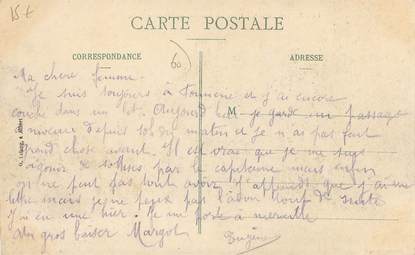 15 €
CARTE POSTALE
CORRESPONDANCE
60
ADRESSE
Ma chere femme.
Je suis toujours à et j'ai encore
couché dans un lit. Aujourd hui je garde un passage
M
a niveau depuis 10h du matin et je n'ai pas fait
grand chose avant. Il est vrai que je me fais
de sottises par le capitaine mais enfin
on ne peut pas tout avoir. J'attends que j'ai une
lettre mais je ne peux pas l'avoir tout de suite
J'ai eu une hier. Je me porte a merveille
gros baiser Margot
Eugène